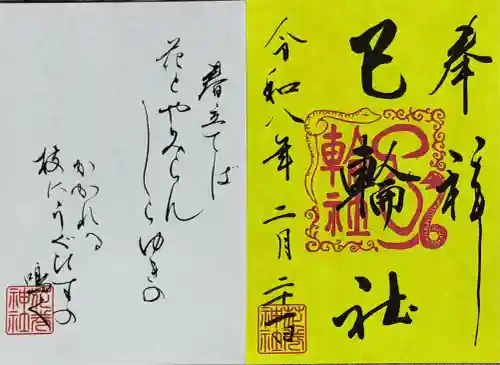 奉拝
巳輪社
令和八年二月二十
輪社
神社
春立てば
花とやみらん
しらゆきの
かかれる
枝にうぐひすの
鳴く
神社